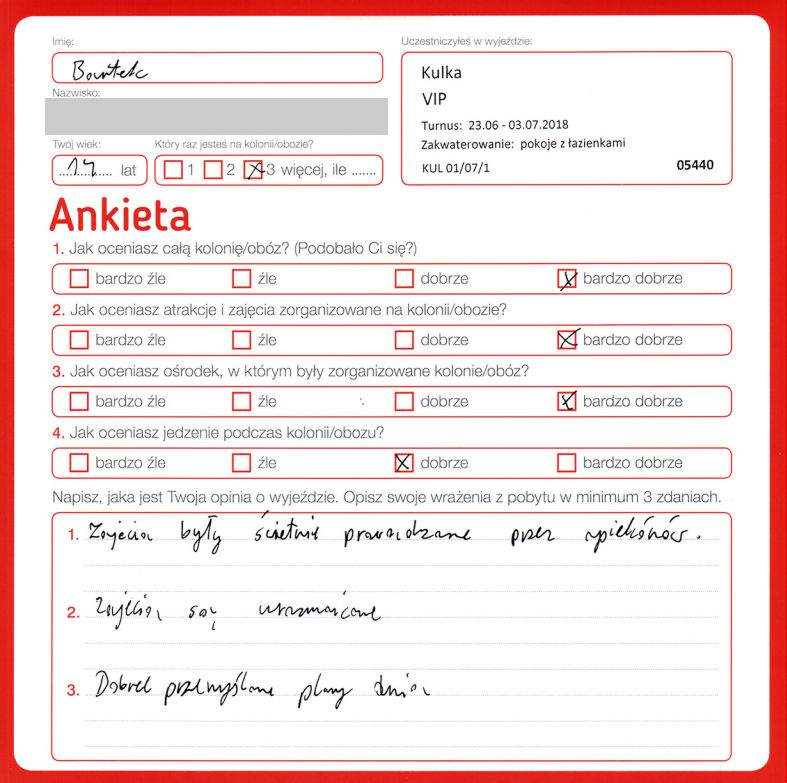 Imię:
Bartek
Nazwisko:
Twój wiek:
14 lat
Który raz jesteś na kolonii/obozie?
1 2 3 więcej, ile .......
Uczestniczyłeś w wyjeździe:
Kulka
VIP
Turnus: 23.06 - 03.07.2018
Zakwaterowanie: pokoje z łazienkami
KUL 01/07/1 05440
Ankieta
1. Jak oceniasz całą kolonię/obóz? (Podobało Ci się?)
bardzo źle źle dobrze bardzo dobrze
2. Jak oceniasz atrakcje i zajęcia zorganizowane na kolonii/obozie?
bardzo źle źle dobrze bardzo dobrze
3. Jak oceniasz ośrodek, w którym były zorganizowane kolonie/obóz?
bardzo źle źle dobrze bardzo dobrze
4. Jak oceniasz jedzenie podczas kolonii/obozu?
bardzo źle źle dobrze bardzo dobrze
Napisz, jaka jest Twoja opinia o wyjeździe. Opisz swoje wrażenia z pobytu w minimum 3 zdaniach.
1. Zajęcia były świetnie prowadzane przez opiekónów.
2. Zajęcia są urozmaicone
3. Dobrze przemyślane plany dnia